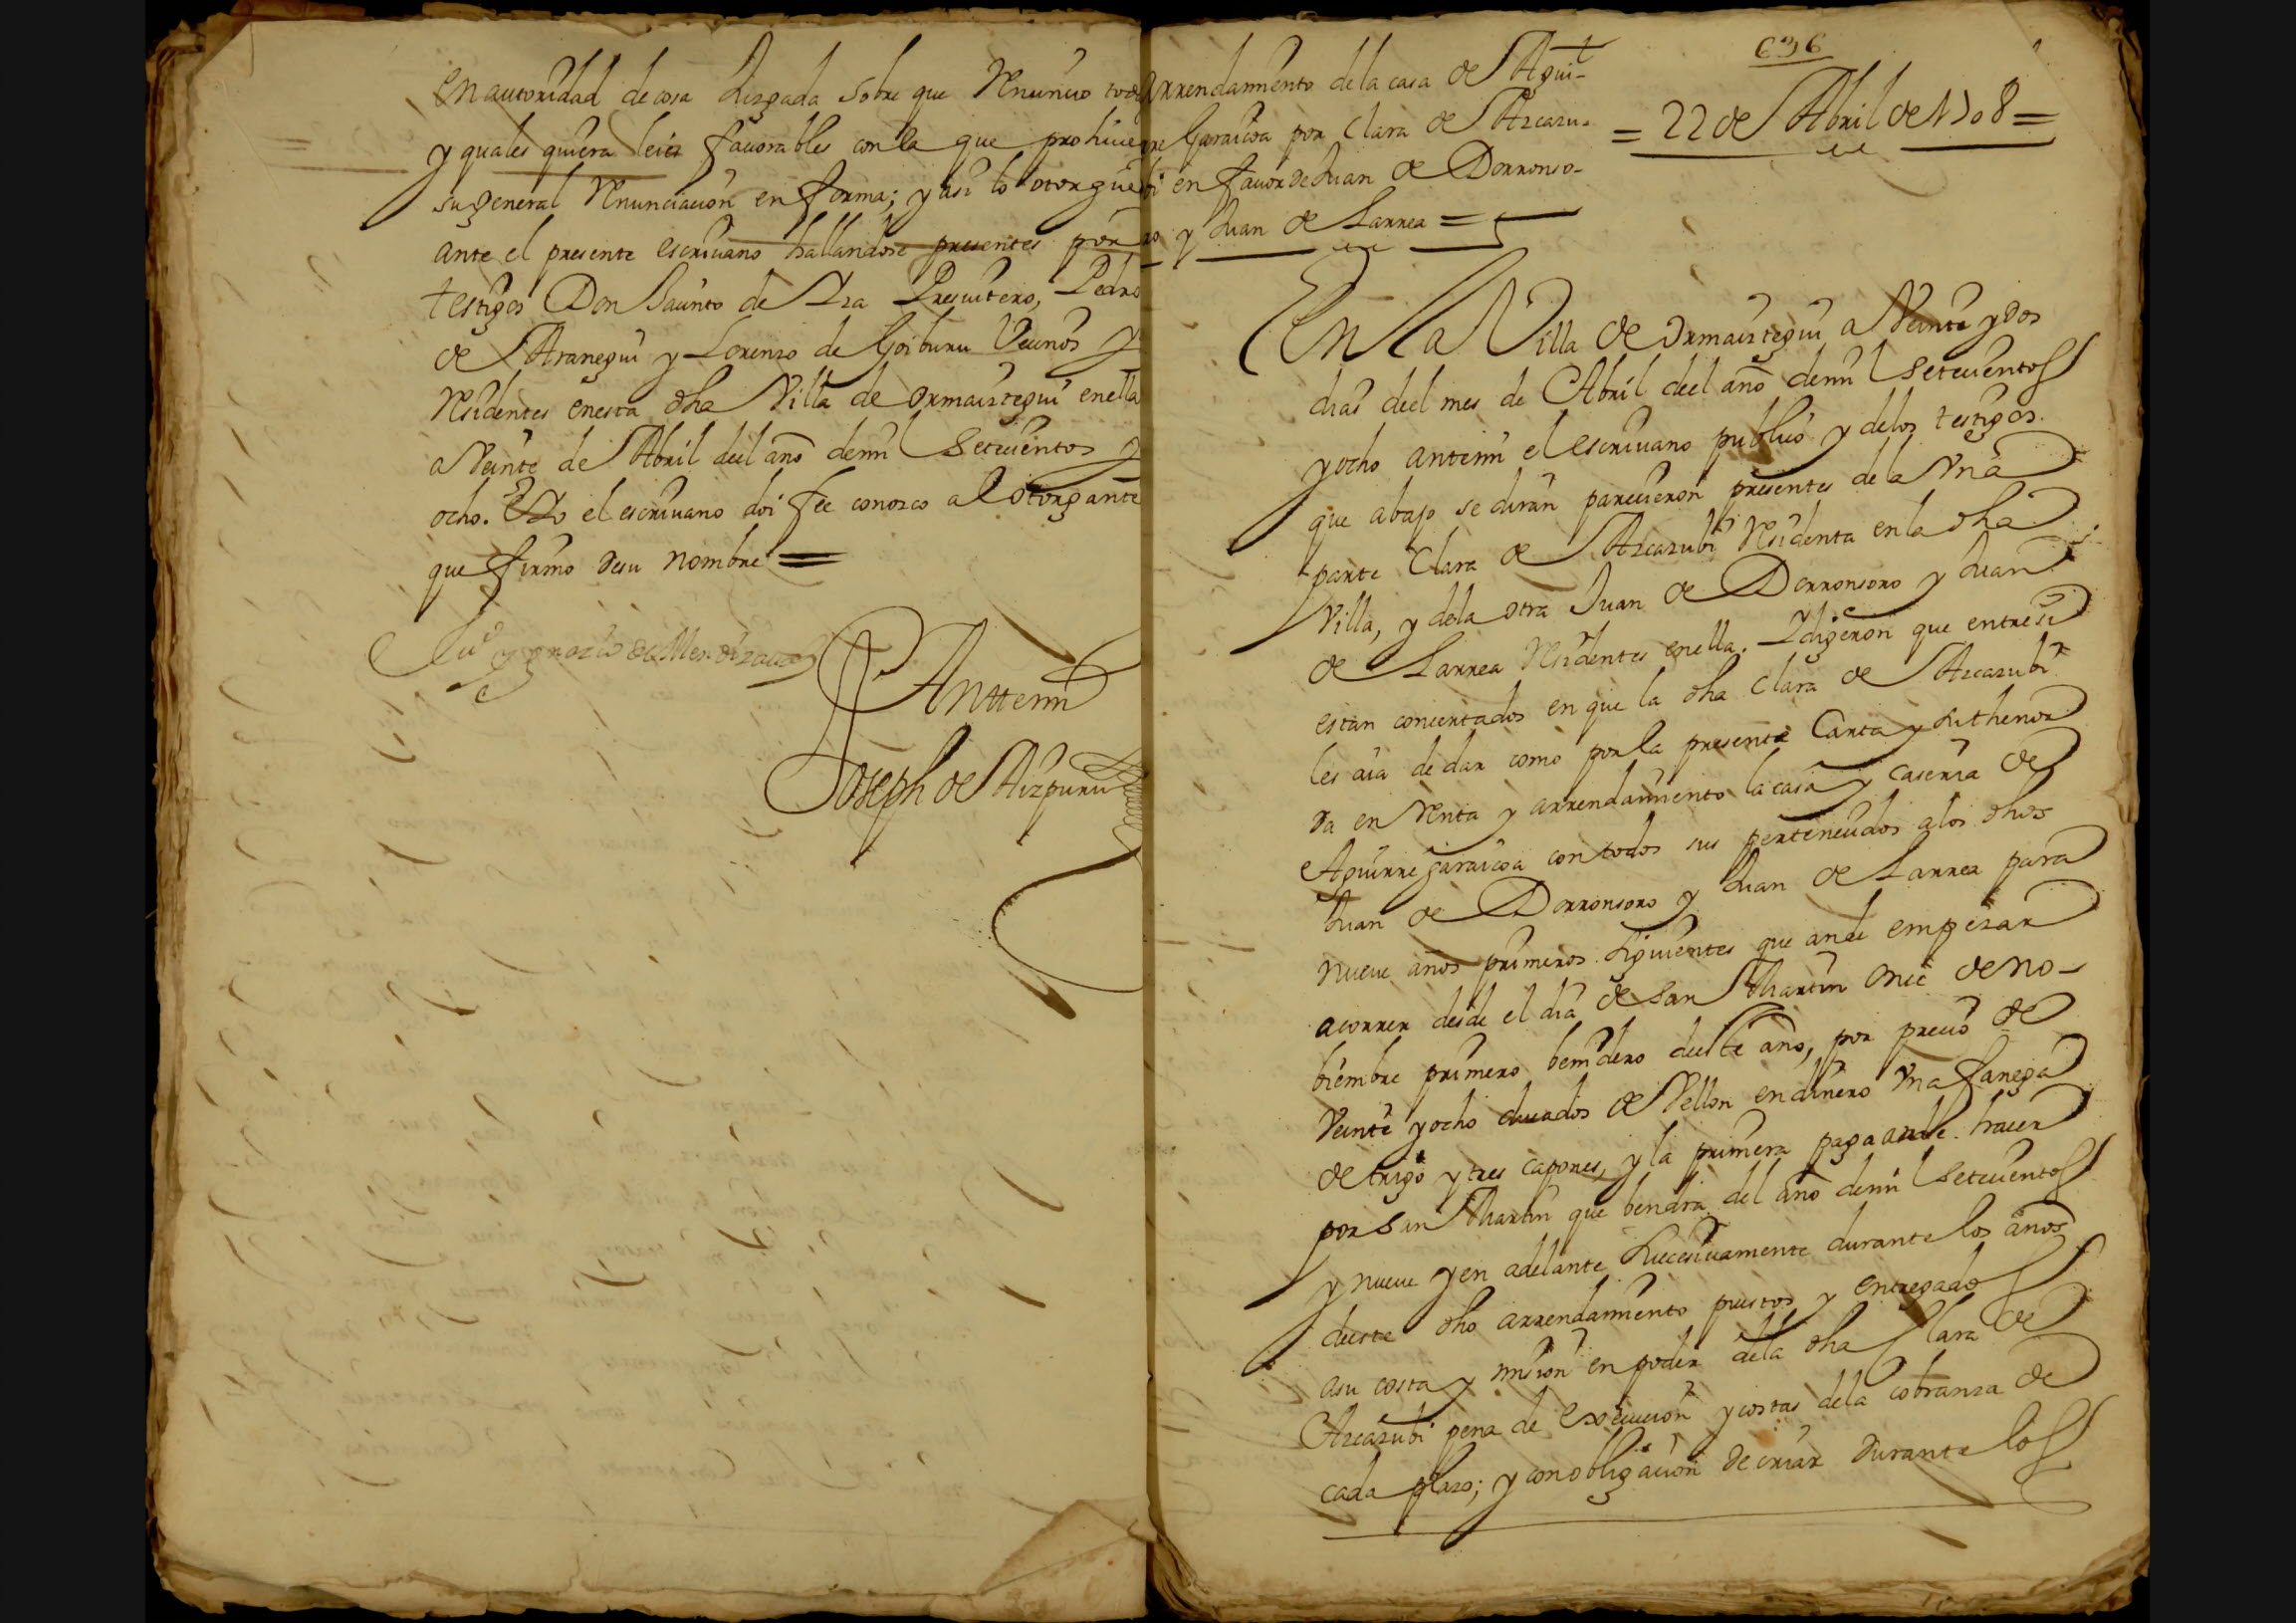 en autoridad de cosa Jusgada sobre que Renuncio todas
y quales quiera leies fauorables con la que prohiue
su general Renunciacion en forma; y asi lo otorgue
ante el presente escriuano hallandose presentes por
testigos Don Jacinto de Presuitero, Pedro
de Aranegui y Lorenso de Goiburu Vecinos y
Residentes en esta dha Villa de Ormaiztegui en ella
a Veinte de Abril deel año de mil Setecientos y
ocho. E Yo el escriuano doi fee conosco al otorgante
que firmo de su nombre =
Anttemi
Joseph de Aizpuru
696
Arrendamiento de la casa de Agui-
rre Garaicoa por Clara de Azcazu-
bi en fauor de Juan de Dorronso-
ro y Juan de Larrea =
= 22 de Abril de 1708 =
En La Villa de Ormaiztegui a Veinte y dos
dias deel mes de Abril deel año de mil Setecientos
y ocho antemi el escriuano publico y delos testigos
que abajo se diran parecieron presentes dela Vna
parte Clara de Azcazubi Residenta en la dha
Villa, y dela otra Juan de Dorronsoro y Juan
de Larrea Residentes en ella. Y digeron que entre si
estan concertados en que la dha Clara de Azcazubi
les aia de dar como por la presente Carta y su thenor
da en Renta y arrendamiento la casa y caseria de
Aguirre garaicoa con todos sus pertenecidos a los dhos
Juan de Dorronsoro y Juan de Larrea para
nueue años primeros siguientes que an de empezar
a correr desde el dia de San Martin onze de no-
biembre primero benidero deeste año, por precio de
Veinte y ocho ducados de Vellon en dinero Vna fanega
de trigo y tres capones, y la primera paga an de hacer
por San Martin que bendra del año de mil Setecientos
y nueue y en adelante Sucesiuamente durante los años
deeste dho arrendamiento puestos y entregados
a su costa y mision en poder dela dha Clara de
Azcazubi pena de execucion y costas dela cobranza de
cada plaso; y con obligacion de criar durante los